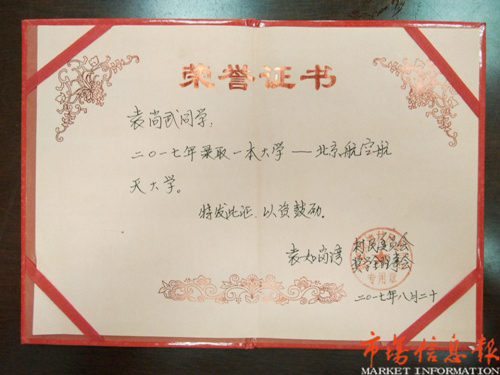 荣誉证书
袁尚武同学:
二〇一七年录取一本大学——北京航空航
天大学。
特发此证,以资鼓励。
袁如岗湾 村民委员会
奖学理事会
专用章
二〇一七年八月二十
市场信息报
MARKET INFORMATION